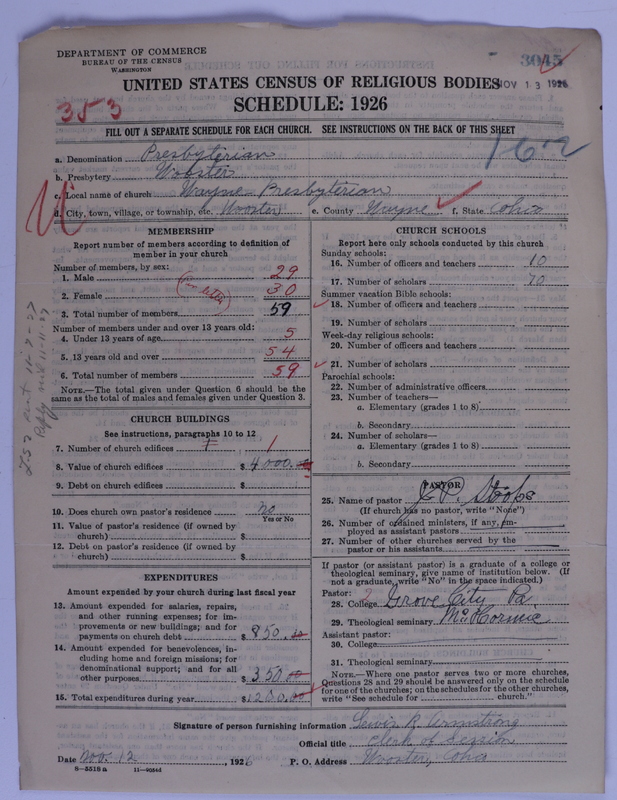 DEPARTMENT OF COMMERCE
BUREAU OF THE CENSUS
WASHINGTON
3045
NOV 13 1926
UNITED STATES CENSUS OF RELIGIOUS BODIES
SCHEDULE: 1926
353
FILL OUT A SEPARATE SCHEDULE FOR EACH CHURCH. SEE INSTRUCTIONS ON THE BACK OF THIS SHEET
a. Denomination Presbyterian
b. Presbytery Wooster
c. Local name of church Wayne Presbyterian
d. City, town, village, or township, etc. Wooster e. County Wayne f. State Ohio
MEMBERSHIP
Report number of members according to definition of
member in your church
Number of members, by sex:
1. Male 29
2. Female (per letter) 30
3. Total number of members 59
Number of members under and over 13 years old:
4. Under 13 years of age 5
5. 13 years old and over 54
6. Total number of members 59
NOTE.—The total given under Question 6 should be the
same as the total of males and females given under Question 3.
CHURCH BUILDINGS
See instructions, paragraphs 10 to 12
7. Number of church edifices 1 1
8. Value of church edifices $ 4000.00
9. Debt on church edifices $
10. Does church own pastor's residence no
Yes or No
11. Value of pastor's residence (if owned by
church) $
12. Debt on pastor's residence (if owned by
church) $
EXPENDITURES
Amount expended by your church during last fiscal year
13. Amount expended for salaries, repairs,
and other running expenses; for im-
provements or new buildings; and for
payments on church debt $ 850.00
14. Amount expended for benevolences, in-
cluding home and foreign missions; for
denominational support; and for all
other purposes $ 350.00
15. Total expenditures during year $ 1200.00
CHURCH SCHOOLS
Report here only schools conducted by this church
Sunday schools:
16. Number of officers and teachers 10
17. Number of scholars 70
Summer vacation Bible schools:
18. Number of officers and teachers
19. Number of scholars
Week-day religious schools:
20. Number of officers and teachers
21. Number of scholars
Parochial schools:
22. Number of administrative officers
23. Number of teachers—
a. Elementary (grades 1 to 8)
b. Secondary
24. Number of scholars—
a. Elementary (grades 1 to 8)
b. Secondary
PASTOR
25. Name of pastor J. P. Stoops
(If church has no pastor, write "None")
26. Number of ordained ministers, if any, em-
ployed as assistant pastors
27. Number of other churches served by the
pastor or his assistants
If pastor (or assistant pastor) is a graduate of a college or
theological seminary, give name of institution below. (If
not a graduate, write "No" in the space indicated.)
Pastor:
28. College 2 Grove City Pa.
29. Theological seminary McKormic
Assistant pastor:
30. College
31. Theological seminary
NOTE.—Where one pastor serves two or more churches,
Questions 28 and 29 should be answered only on the schedule
for one of the churches; on the schedules for the other churches,
write "See schedule for church."
Signature of person furnishing information Lewis R. Armstrong
Official title Clerk of Session
Date Nov. 12, 1926 P. O. Address Wooster, Ohio
8-5518a 11-9054d